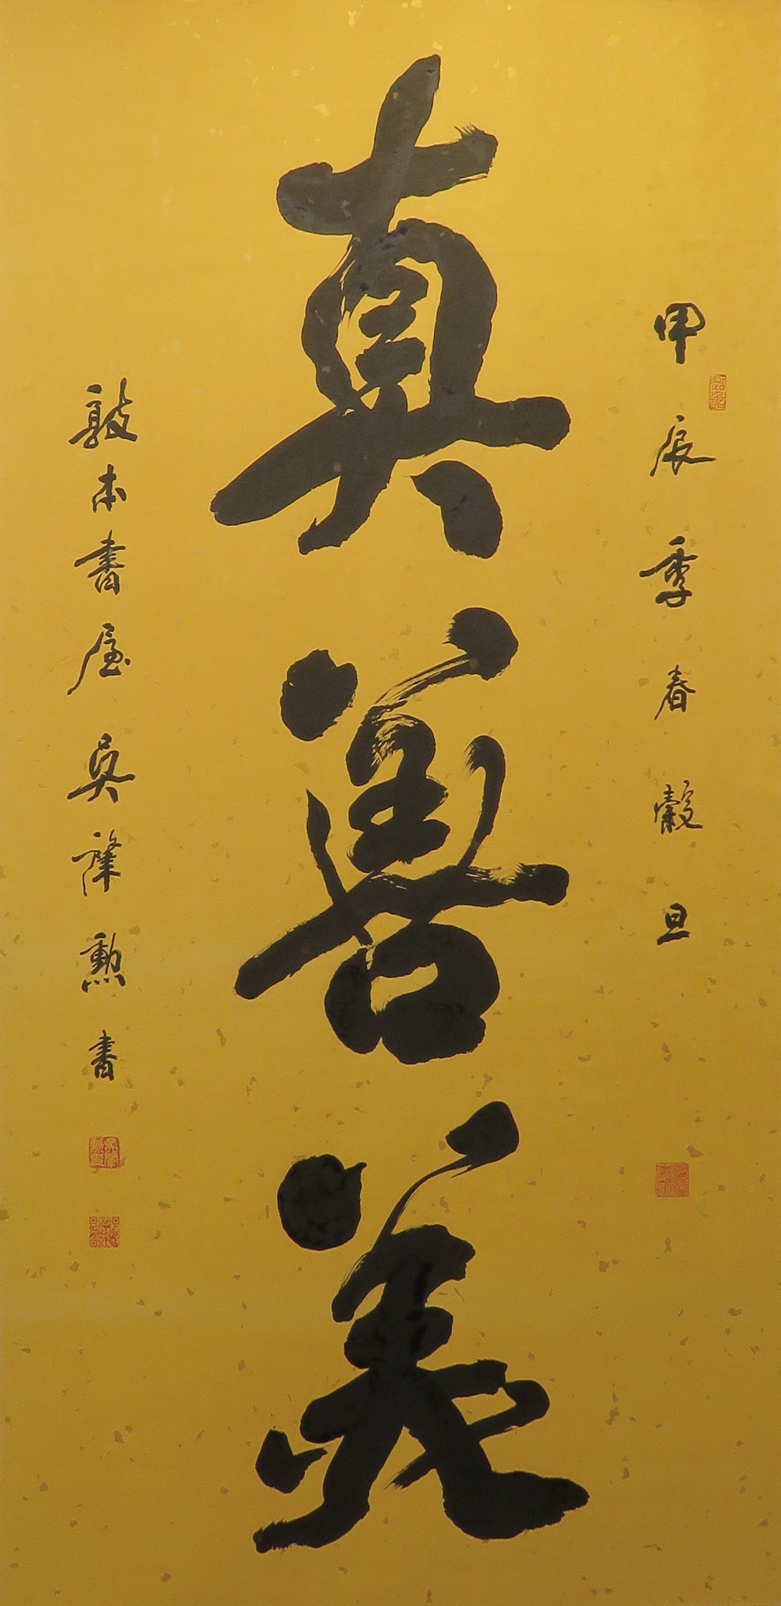 甲辰季春穀旦
真善美
敦本書屋吳隆勳書